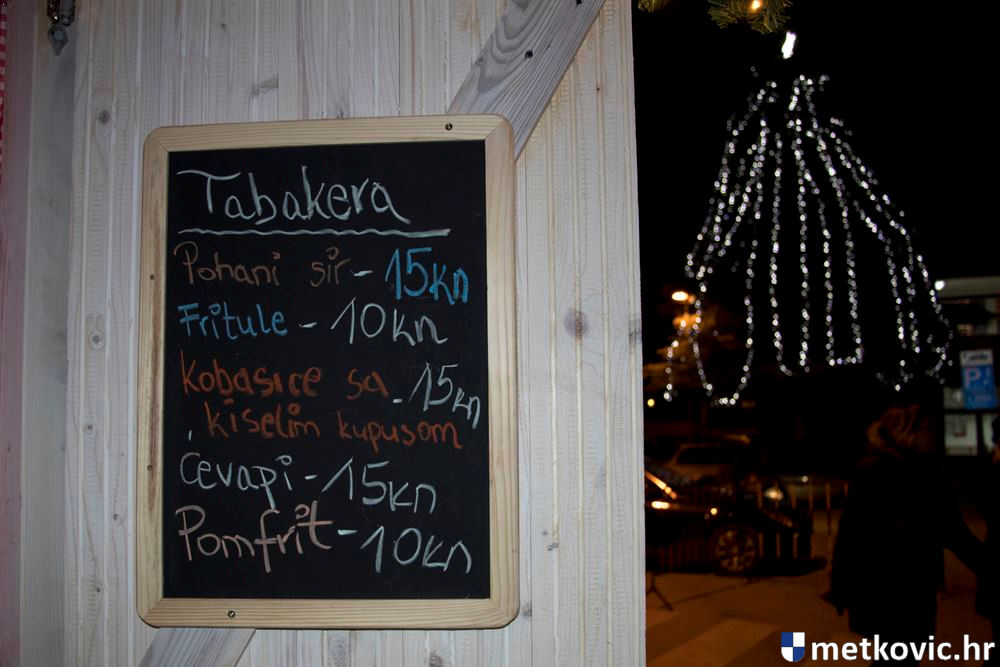 Tabakera
Pohani sir - 15kn
Fritule - 10kn
Kobasice sa - 15kn
kiselim kupusom
Ćevapi - 15kn
Pomfrit - 10kn
P
metkovic.hr